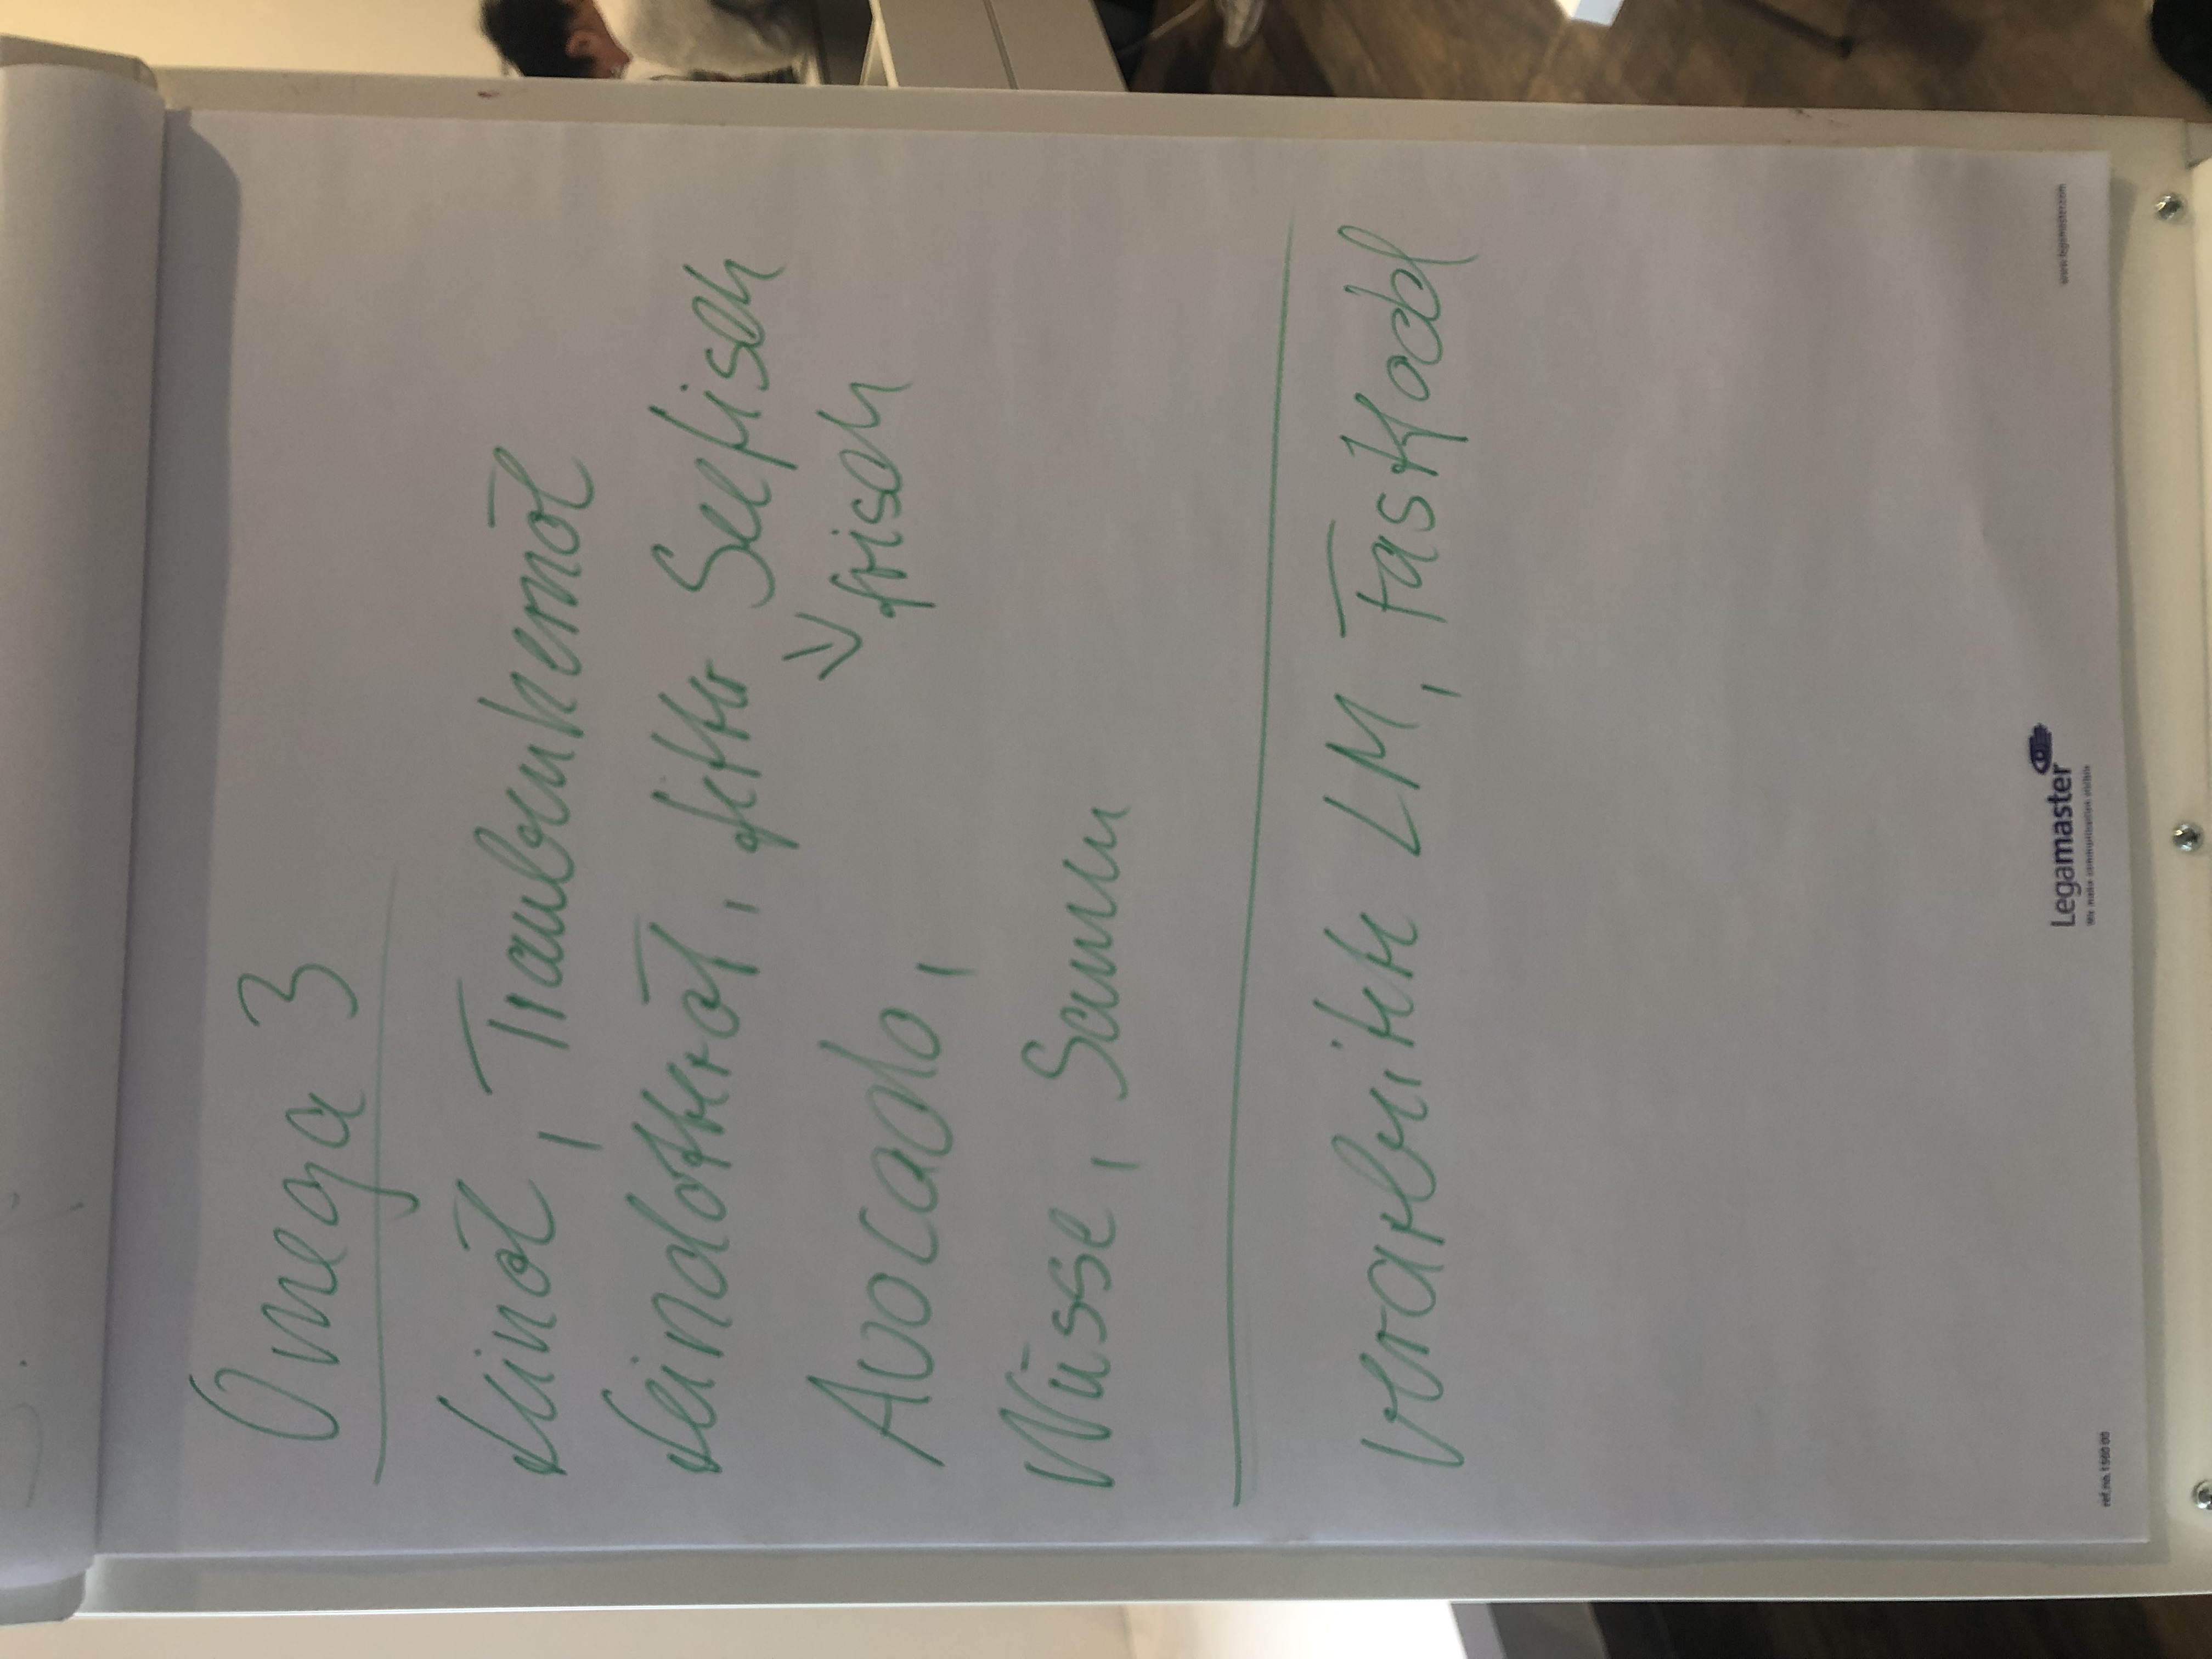 Omega 3
Leinöl, Traubenkernöl
Leindotteröl, fetter Seefisch
→ frisch
Avocado,
Nüsse, Samen
verarbeitete LM, Fastfood
Legamaster
We make communication visible
ref.no. 1560 00
www.legamaster.com